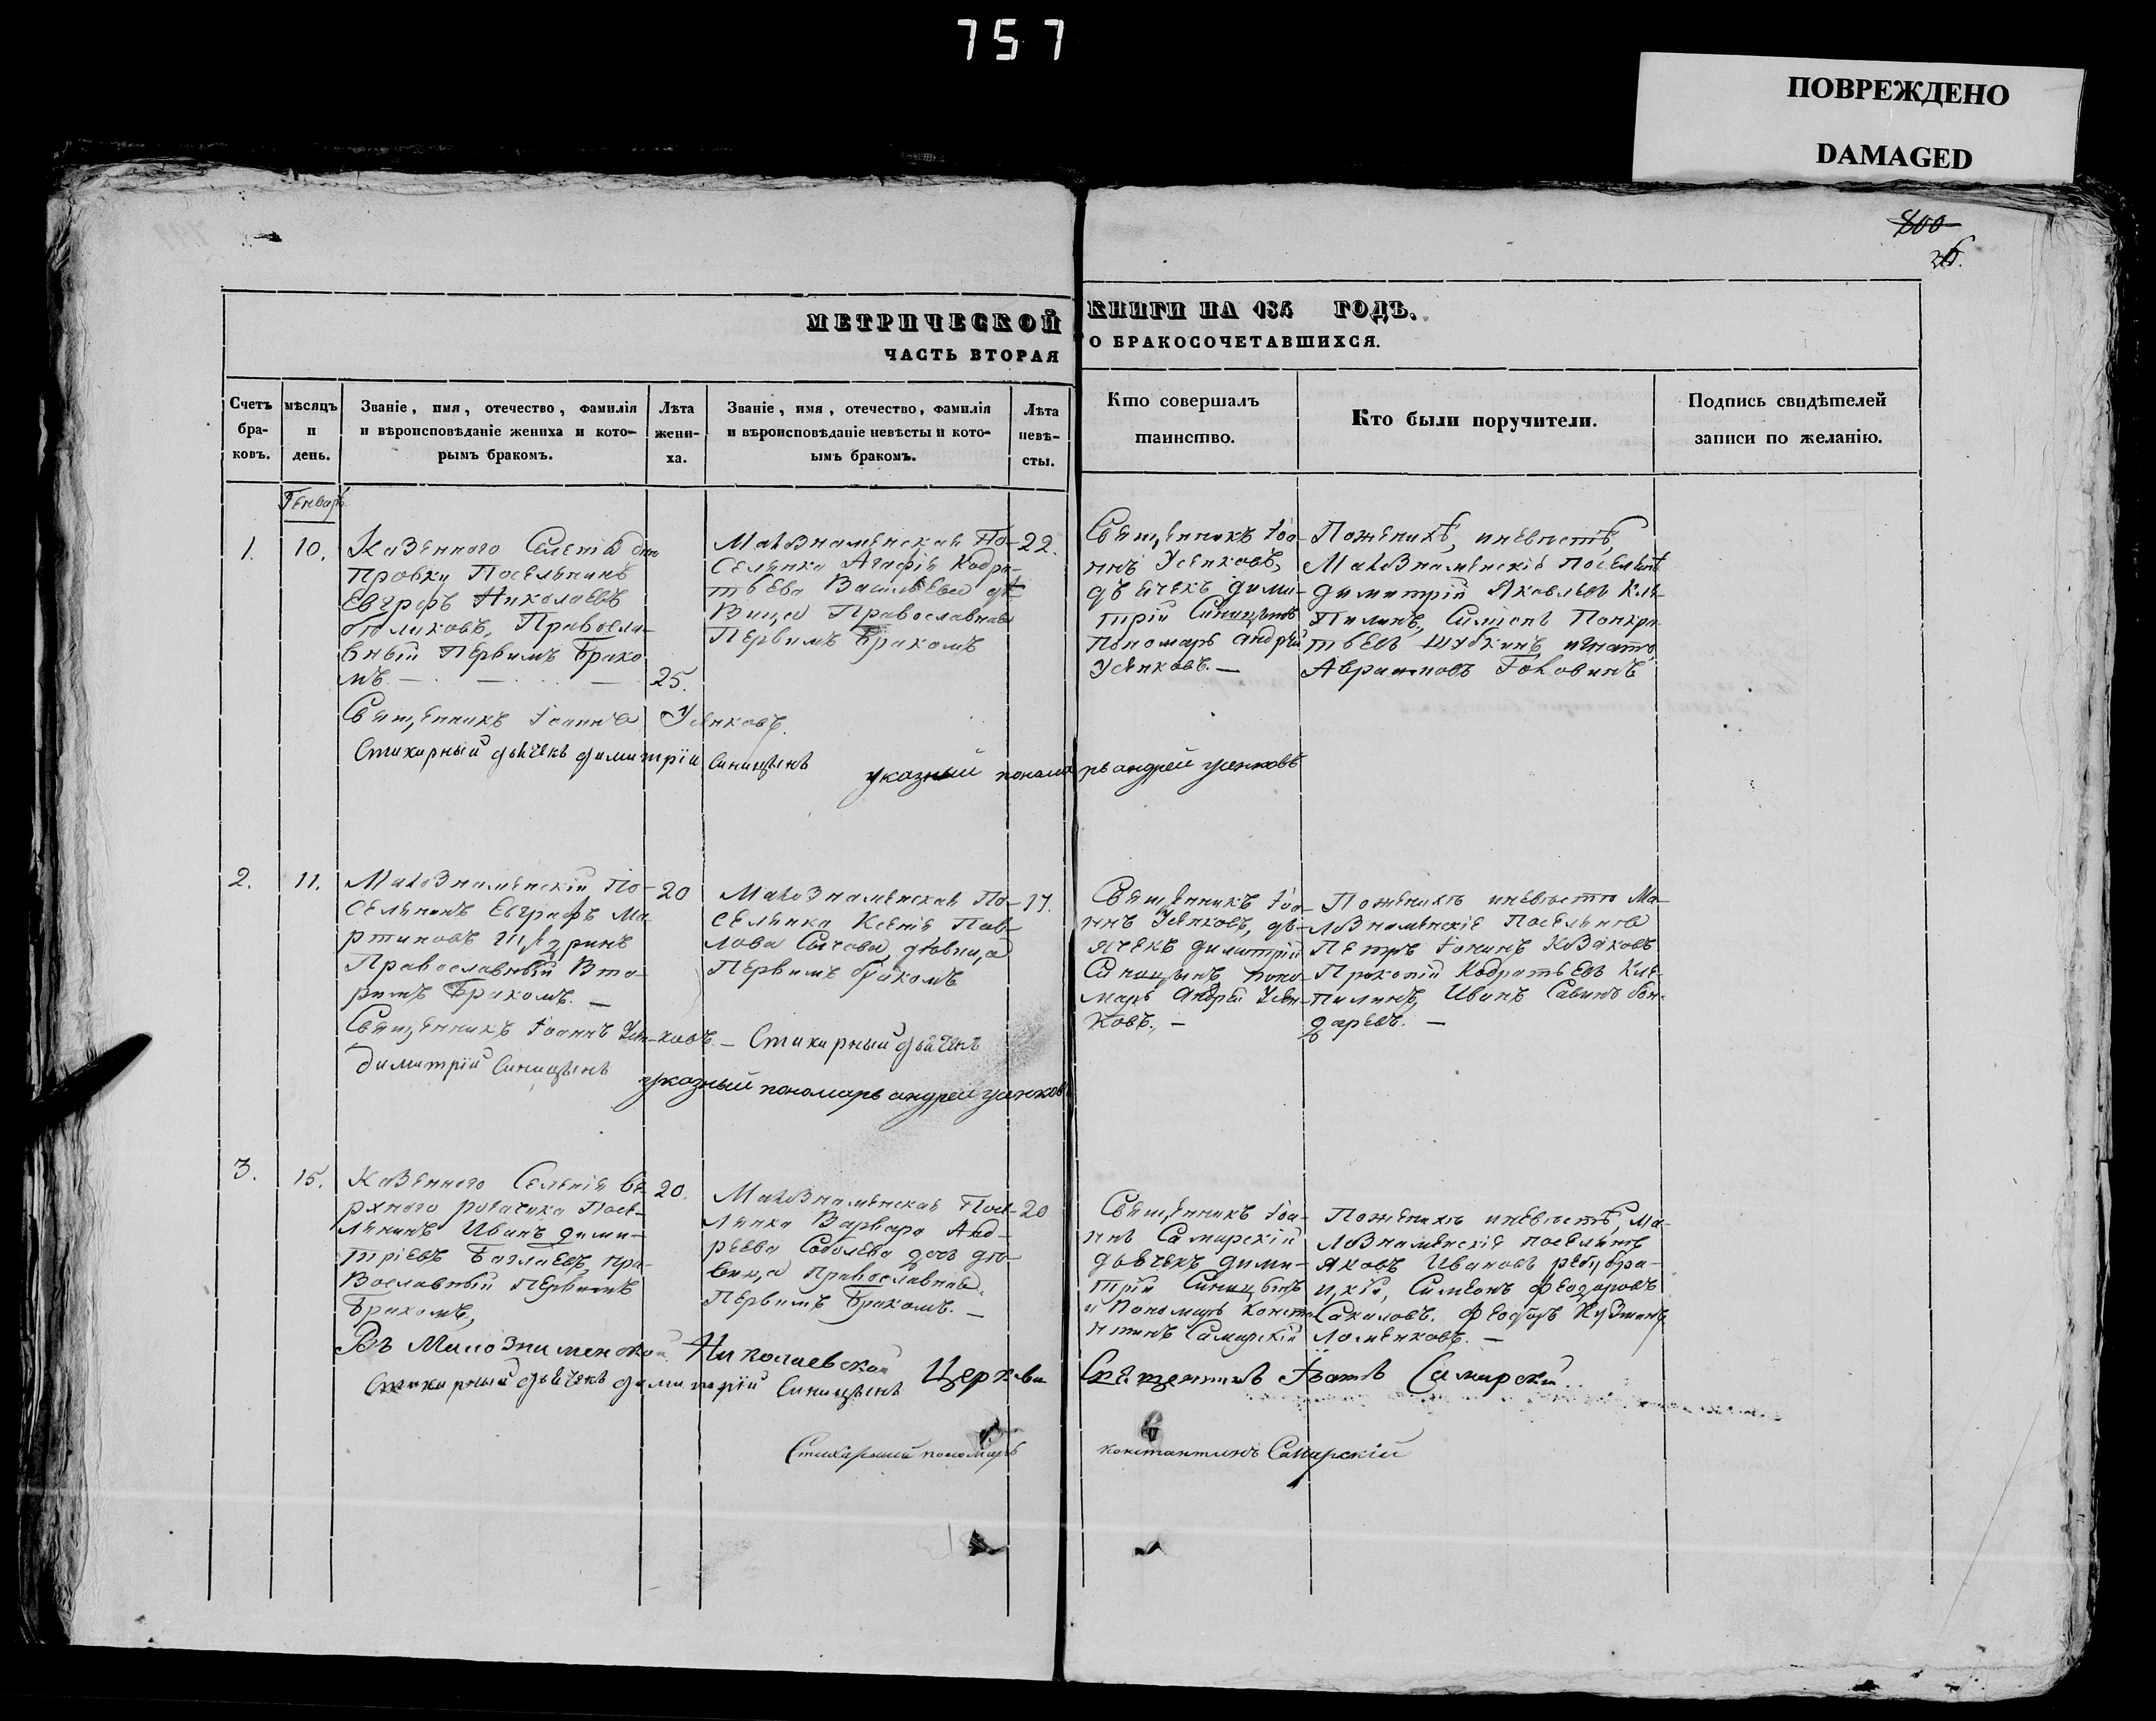 757
ПОВРЕЖДЕНО
DAMAGED
800
МЕТРИЧЕСКОЙ КНИГИ НА 184 ГОДЪ.
ЧАСТЬ ВТОРАЯ О БРАКОСОЧЕТАВШИХСЯ.
Счетъ браковъ.
мѣсяцъ и день.
Званіе, имя, отечество, фамилія
и вѣроисповѣданіе жениха и кото-
рымъ бракомъ.
Лѣта
жени-
ха.
Званіе, имя, отечество, фамилія
и вѣроисповѣданіе невѣсты и кото-
ымъ бракомъ.
Лѣта
невѣ-
сты.
Кто совершалъ
таинство.
Кто были поручители.
Подпись свидѣтелей
записи по желанію.
Генварь
1.
10.
Казенного Селенія Дне
провки Поселянинъ
Евграфъ Николаевъ
Православ-
вный Первымъ Брако
мъ.
25.
Малознаменская По-
селянка Агафія Кодра-
тьева Васильева дѣ-
вица Православная
Первымъ Бракомъ
22.
Священникъ Іоа-
ннъ Усенковъ,
дьячекъ Дими-
трій Синицынъ
Пономарь Андрей
Усенковъ. —
По женихѣ, и невѣстѣ,
Малознаменскіе Поселяне
Димитрій Яковлевъ Кле-
Пилинъ, Симеонъ Понкра-
тьевъ Шубкинъ, Игнатъ
Аврамовъ Головинъ
Священникъ Іоаннъ Усенковъ.
Стихарный дьячекъ Димитрій Синицынъ
указный пономарь андрей усенковъ
2.
11.
Малознаменскій По-
селянинъ Евграфъ Ма-
ртиновъ
Православный Вто-
рымъ Бракомъ. —
20
Малознаменская По-
селянка Ксенія Пав-
лова Сычова, дѣвица
Первымъ бракомъ
17.
Священникъ Іоа-
ннъ Усенковъ, дь-
ячекъ Димитрій
Синицынъ, поно-
марь Андрей Усен-
ковъ. —
По женихѣ и невѣстѣ Ма-
лознаменскіе Поселяне
Петръ Іонинъ Казаковъ
Прокопій Кодратьевъ Кле-
пилинъ, Иванъ Савинъ Бон-
даревъ. —
Священникъ Іоаннъ Усенковъ. — Стихарный дьячекъ
Димитрій Синицынъ
указный пономарь андрей усенковъ
3.
15.
Казенного Селенія Ве
рхнего рогачика Посе-
лянинъ Иванъ Дими-
тріевъ Баглаевъ, пра-
вославный Первымъ
Бракомъ,
20.
Малознаменская Посе-
лянка Варвара Анд-
реева Соболева дочь дѣ-
вица Православная
Первымъ Бракомъ. —
20
Священникъ Іоа-
ннъ Самарскій
дьячекъ Дими-
трій Синицынъ
и Пономарь Конста-
нтинъ Самарскій
По женихѣ и невѣстѣ, Ма-
лознаменскіе поселяне
Яковъ Ивановъ
Симеонъ Феодоровъ
Сакаловъ. Феодоръ Кузминъ
Въ Малознаменской Николаевской Церкви Священникъ Іоаннъ Самарскій
Стихарный дьячекъ Димитрій Синицынъ
Стихарный пономарь константинъ Самарскій